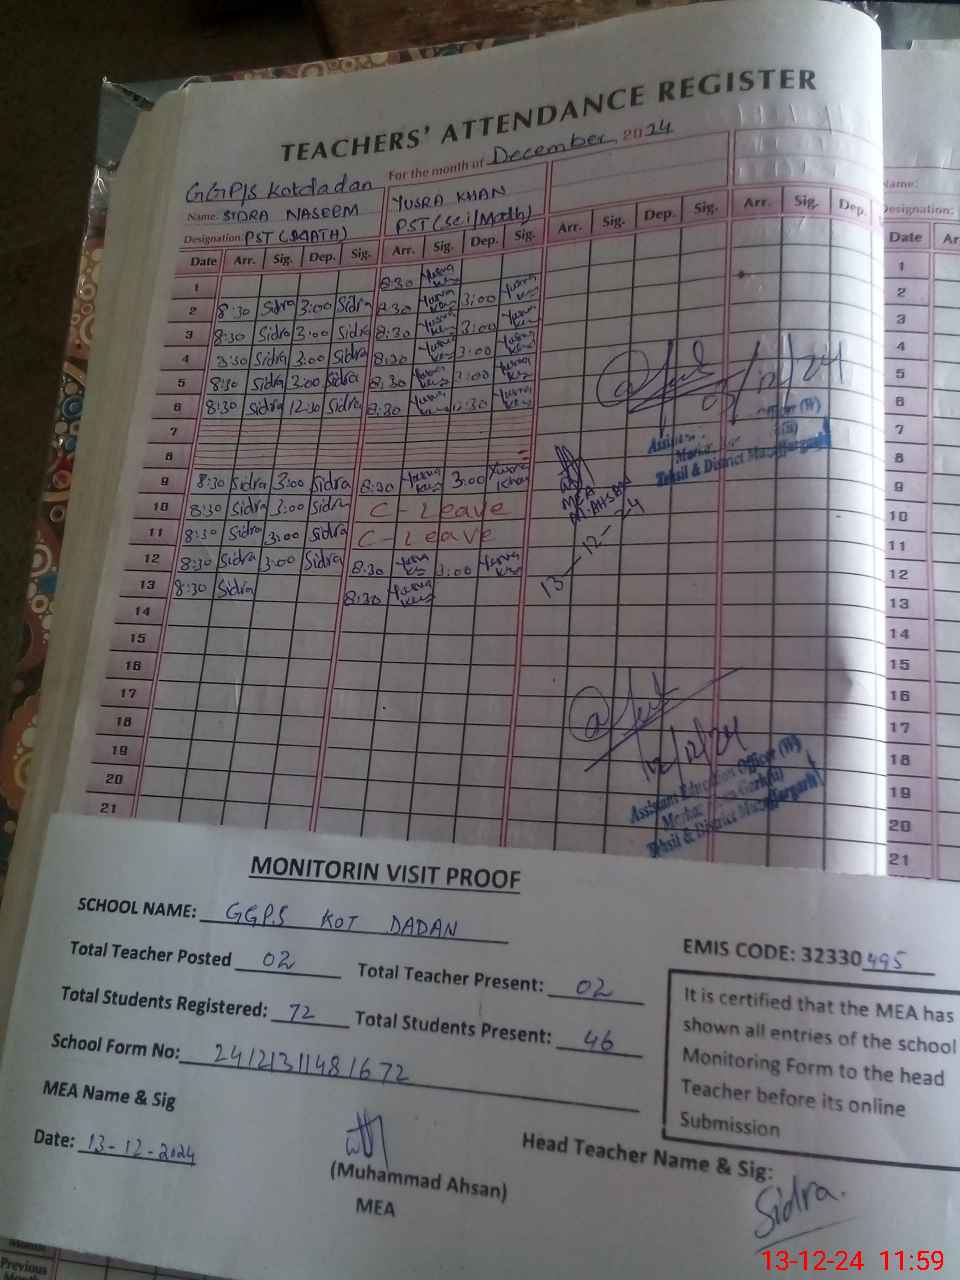 TEACHERS' ATTENDANCE REGISTER
For the month of December 2024
GGP/S Kotdadan
Name: SIDRA NASEEM YUSRA KHAN Name:
Designation: PST (MATH) PST (Sci/Math) Designation:
Date Arr. Sig. Dep. Sig. Arr. Sig. Dep. Sig. Arr. Sig. Dep. Sig. Arr. Sig. Dep. Date Ar
1 8:30 1
2 8:30 Sidra 3:00 Sidra 8:30 3:00 2
3 8:30 Sidra 3:00 Sidra 8:30 3:00 3
4 8:30 Sidra 3:00 Sidra 8:30 3:00 4
5 8:30 Sidra 3:00 Sidra 8:30 3:00 5
6 8:30 Sidra 12:30 Sidra 8:30 12:30 6
7 7
8 8
9 8:30 Sidra 3:00 Sidra 8:30 3:00 Yusra Khan 9
10 8:30 Sidra 3:00 Sidra C - Leave 10
11 8:30 Sidra 3:00 Sidra C - Leave 11
12 8:30 Sidra 3:00 Sidra 8:30 3:00 12
13 8:30 Sidra 8:30 13
14 14
15 15
16 16
17 17
18 18
19 19
20 20
21 21
MEA
M. AHSAN
13-12-24
Tehsil & District Muzaffargarh
12/12/24
Assistant Education Officer (W)
Tehsil & District Muzaffargarh
MONITORIN VISIT PROOF
SCHOOL NAME: GGPS KOT DADAN
EMIS CODE: 32330495
Total Teacher Posted 02 Total Teacher Present: 02
Total Students Registered: 72 Total Students Present: 46
School Form No: 24121311481672
It is certified that the MEA has
shown all entries of the school
Monitoring Form to the head
Teacher before its online
Submission
MEA Name & Sig
Date: 13-12-2024
(Muhammad Ahsan)
MEA
Head Teacher Name & Sig:
Sidra.
Previous
13-12-24 11:59